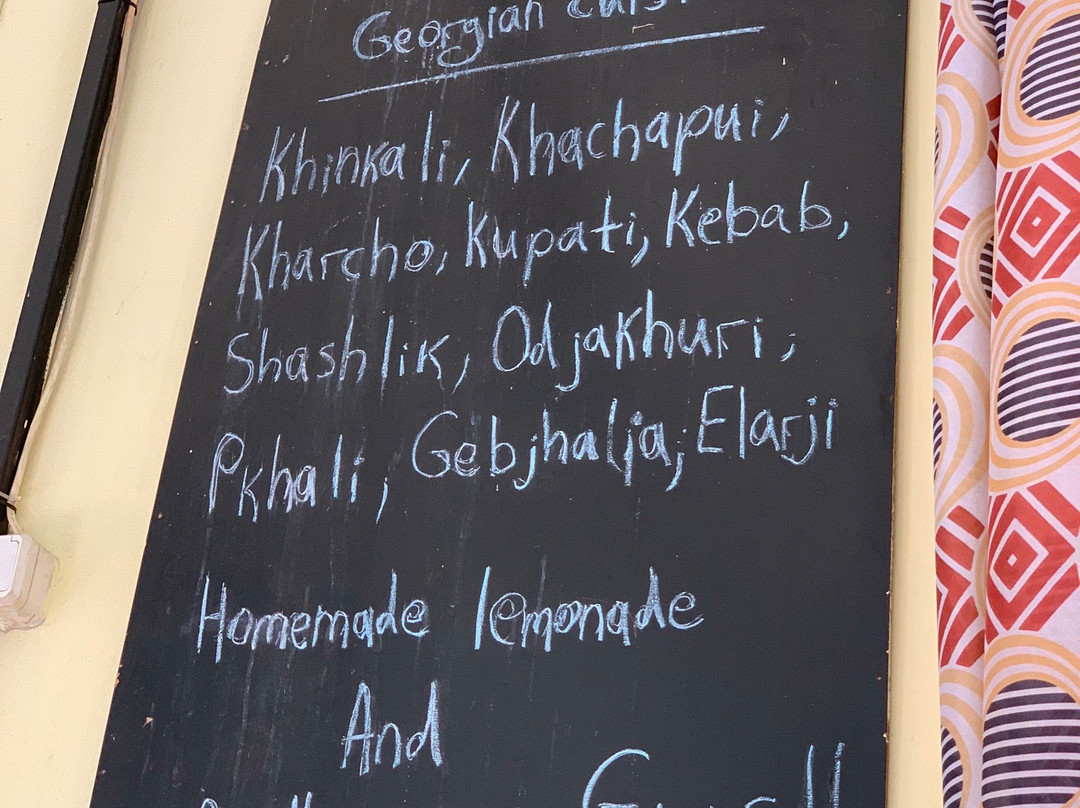 Georgian
Khinkali, Khachapui,
Kharcho, Kupati, Kebab,
Shashlik, Odjakhuri,
Pkhali, Gebjhalja, Elarji
Homemade lemonade
And